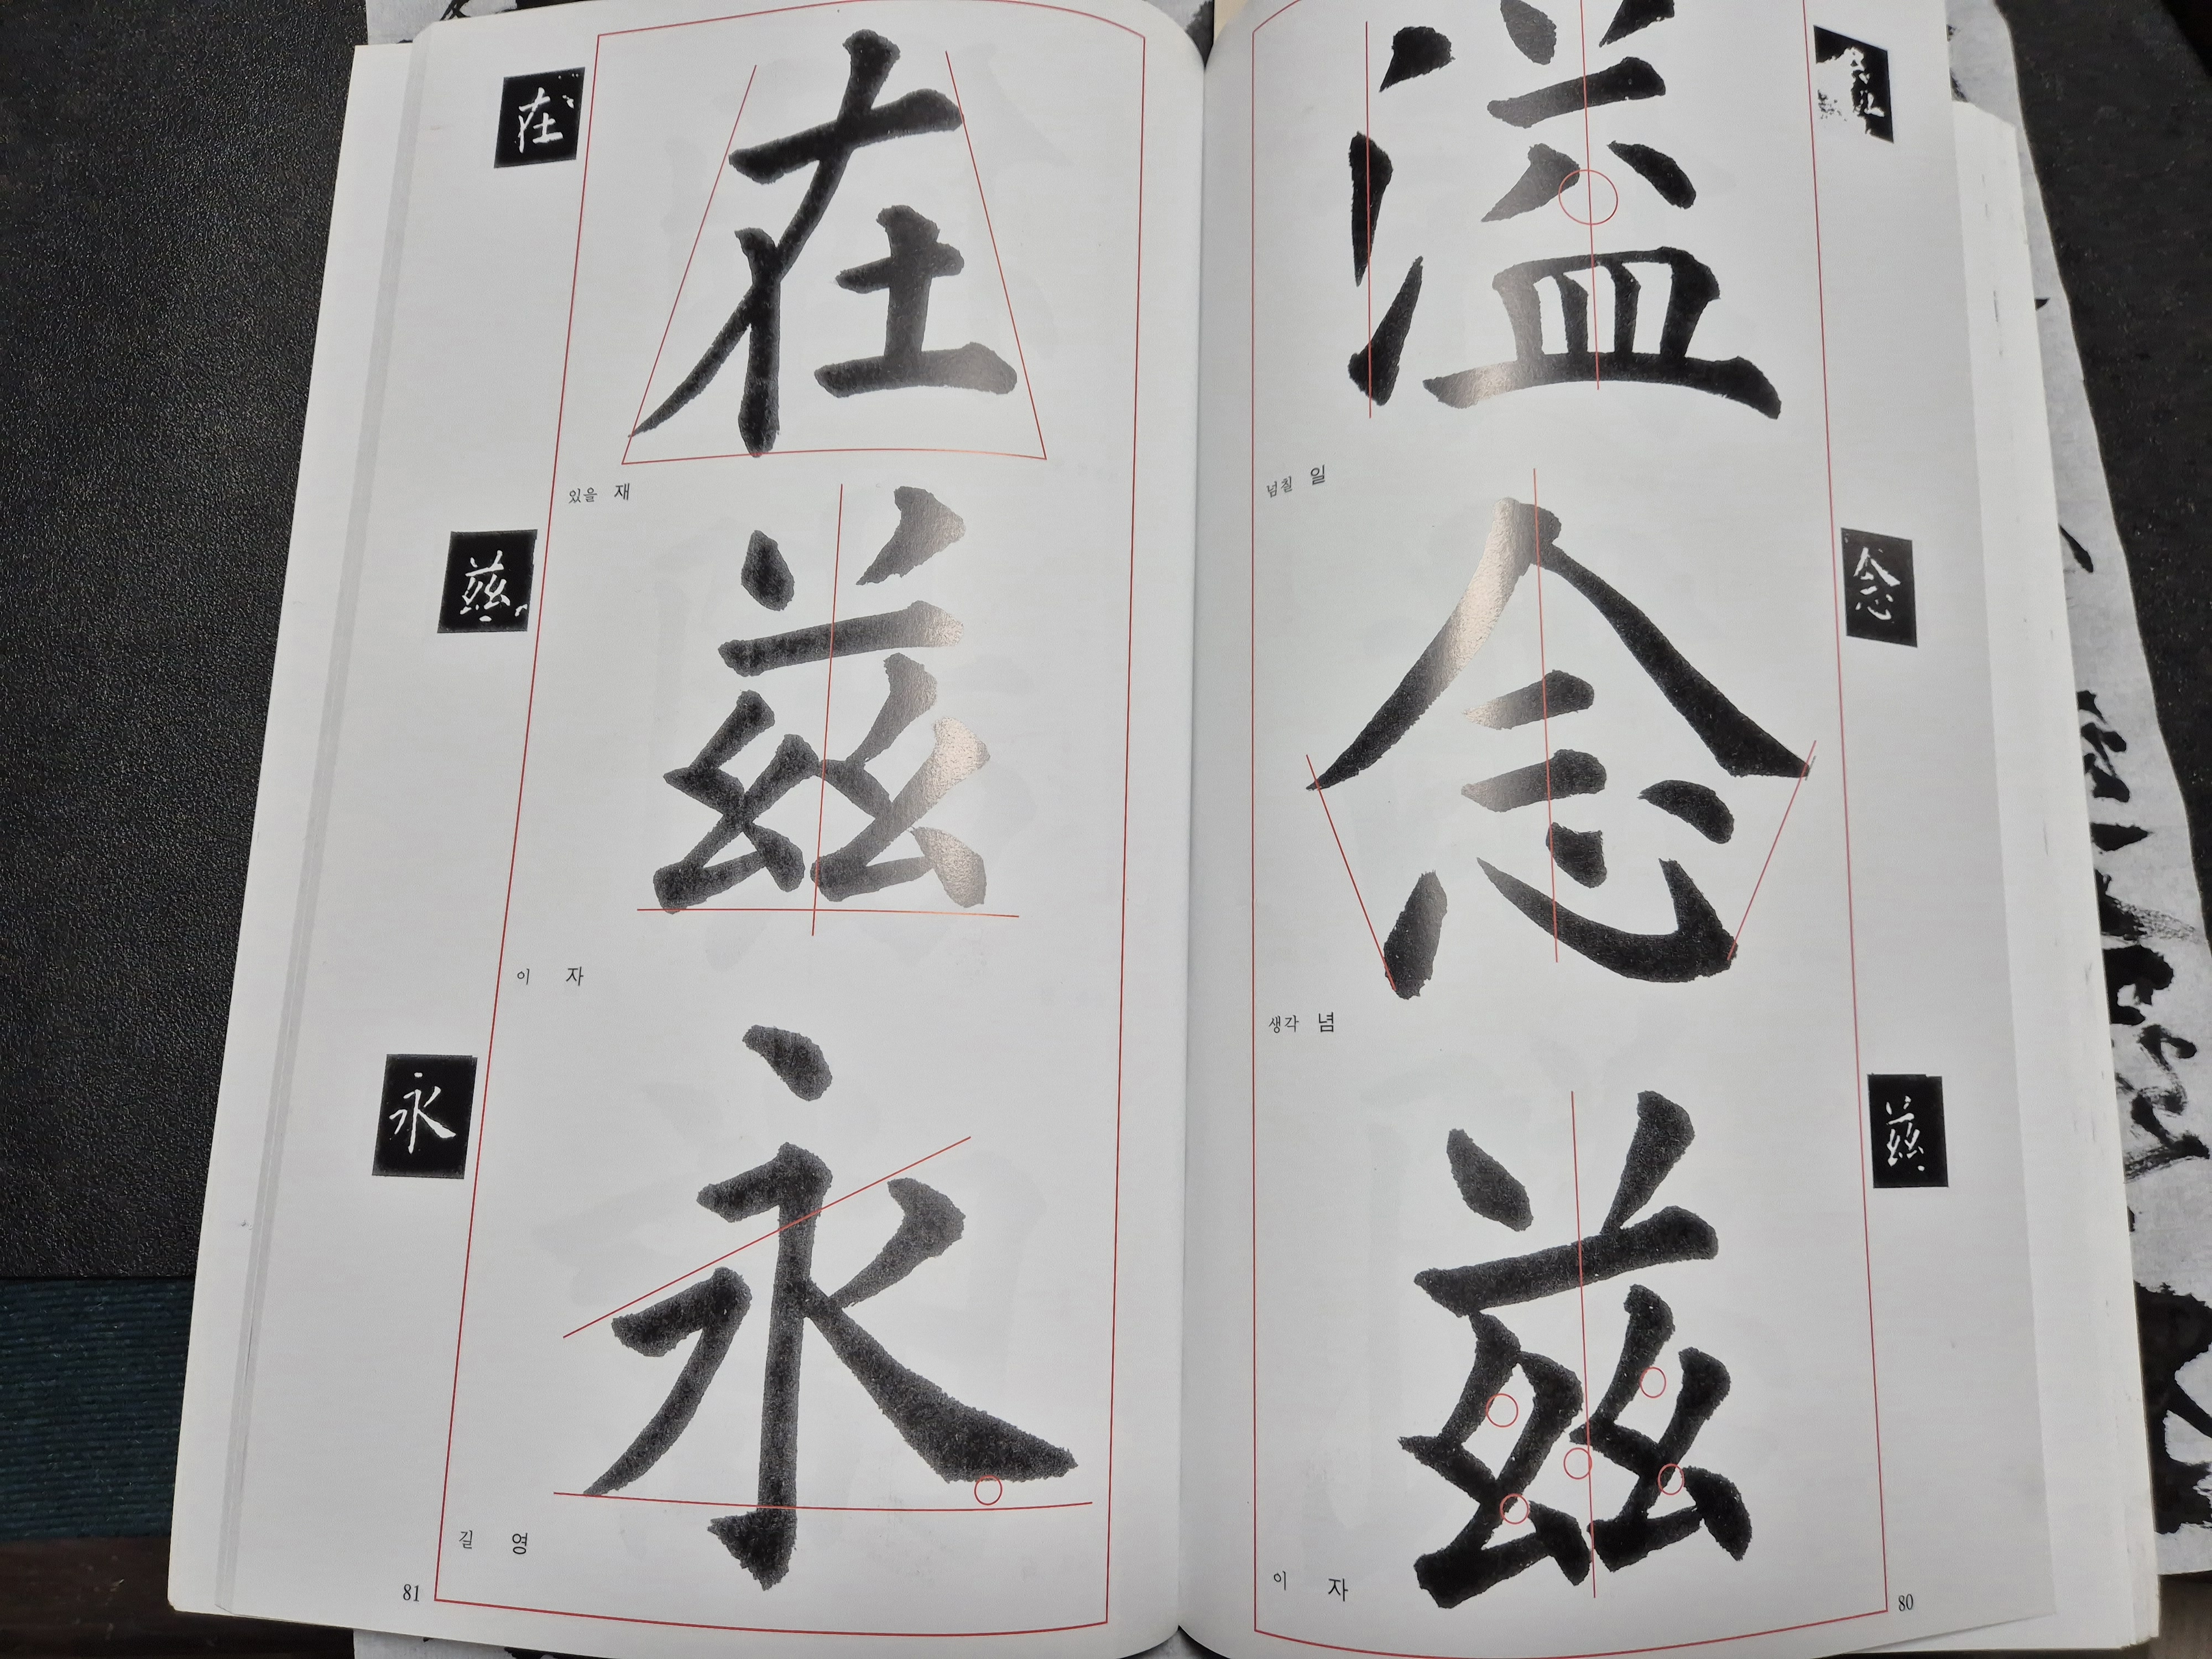 溢
넘칠 일
念
생각 념
茲
이 자
80
在
있을 재
茲
이 자
永
길 영
81
在
茲
永
念
茲